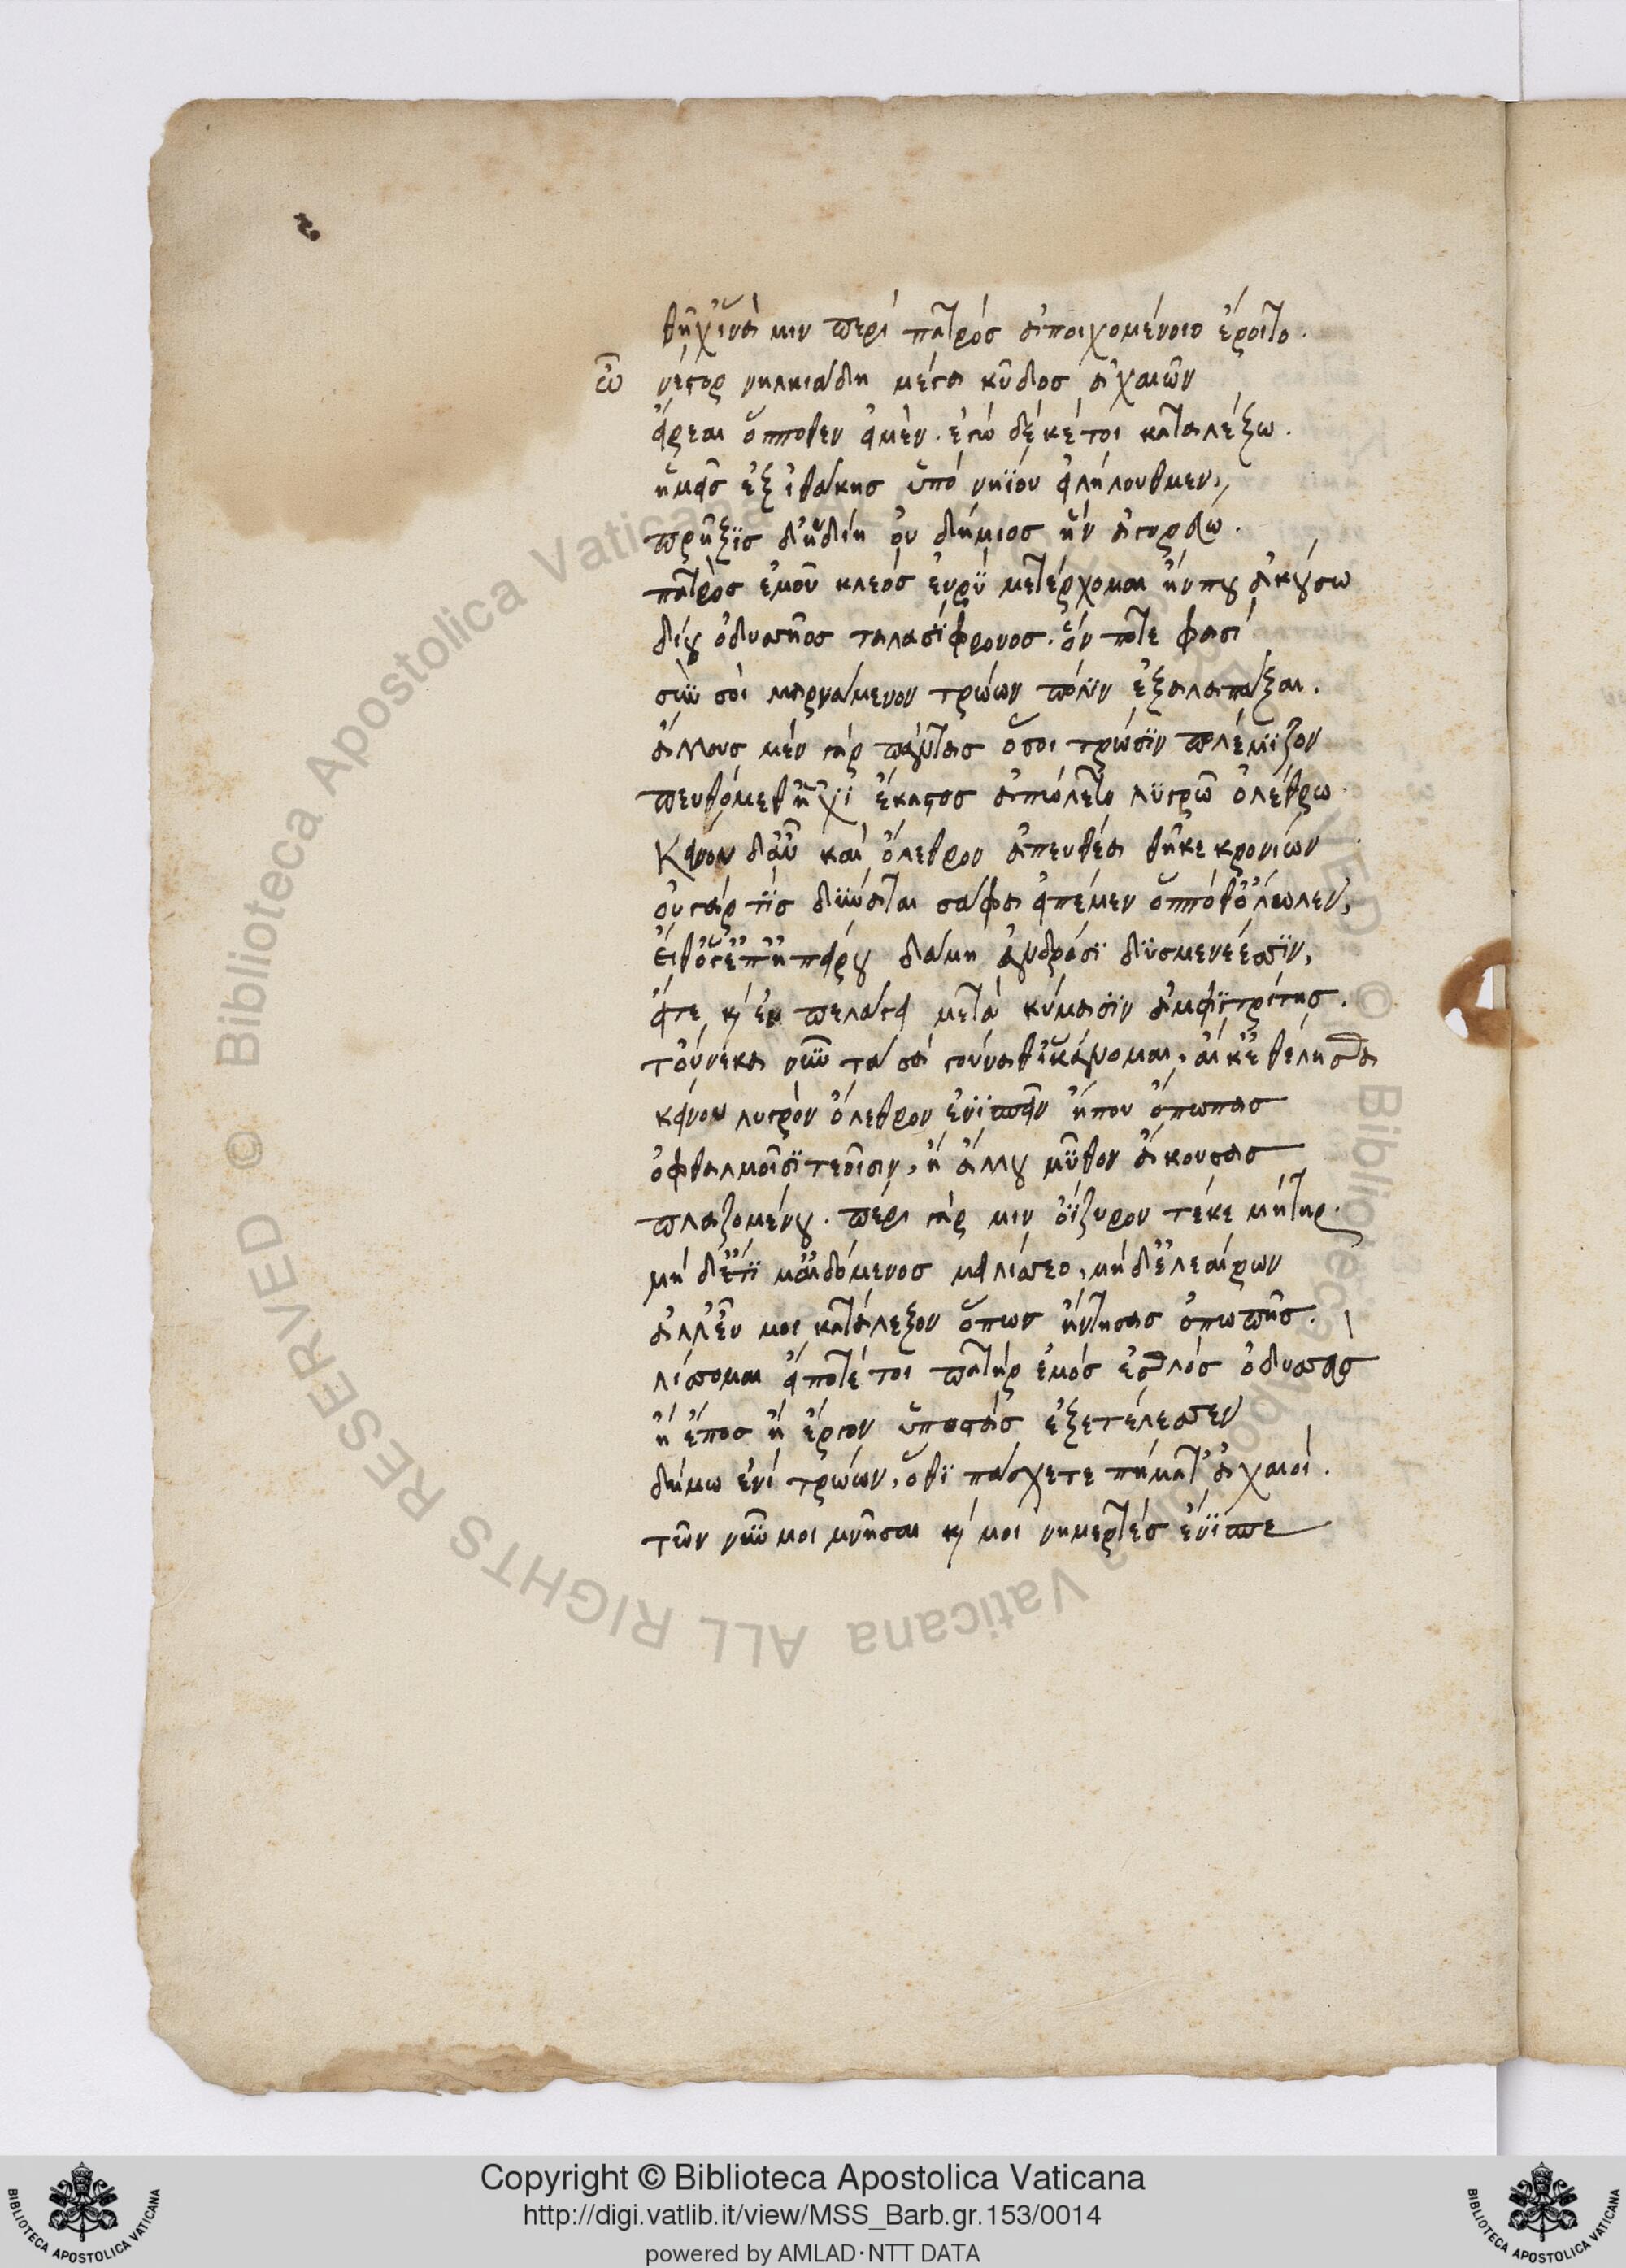 θῆχ᾽ ἵνα μιν περὶ πατρὸς ἀποιχομένοιο ἔροιτο.
ὦ νέστορ νηληιάδη μέγα κῦδος ἀχαιῶν
εἴρεαι ὅπποθεν εἰμὲν. ἐγὼ δέ κέ τοι καταλέξω.
ἡμεῖς ἐξ ἰθάκης ὑπὸ νηΐου εἰλήλουθμεν,
πρῆξϊς δ᾽ ἡδ᾽ ἰδίη οὐ δήμιος ἣν ἀγορεύω.
πατρὸς ἐμοῦ κλεὸς εὐρὺ μετέρχομαι ἤν που ἀκούσω
δίου ὀδυσσῆος ταλασΐφρονος. ὅν ποτε φασὶ
σὺν σοὶ μαρνάμενον τρώων πόλϊν ἐξαλαπάξαι.
ἄλλους μὲν γὰρ πάντας ὅσοι τρώσϊν πολέμϊζον
πευθόμεθ᾽ ἧχϊ ἕκαστος ἀπώλετο λϋγρῶ ὀλέθρω.
Κεῖνον δ᾽ αὖ καὶ ὄλεθρον ἀπευθέα θῆκε κρονίων
οὐ γάρ τϊς δύναται σάφα εἰπέμεν ὁππόθ᾽ ὄλωλεν,
εἴθ᾽ ὅγ᾽ ἐπ᾽ ἠπείρου δάμη ἀνδράσϊ δϋσμενέεσσϊν,
εἴτε κ(αὶ) ἐν πελάγει μετὰ κύμασϊν ἀμφϊτρίτης.
τοὔνεκα νῦν τὰ σὰ γούναθ᾽ ἱκάνομαι, αἴ κ᾽ ἐθέλησθα
κεῖνου λυγρὸν ὄλεθρον ἐνϊσπεῖν ἤπου ὄπωπας
ὀφθαλμοῖσϊ τεοῖσιν, ἢ ἄλλου μῦθον ἄκουσας
πλαζομένου. πέρι γάρ μιν ὀϊζυρον τέκε μήτηρ.
μὴ δέ τϊ μ᾽ αἰδόμενος μειλίσσεο, μὴ δ᾽ ἐλεαίρων
ἀλλ᾽ εὖ μοι κατάλεξον ὅπως ἤντησας ὀπωπῆς.
λίσσομαι εἴποτέ τοι πατὴρ ἐμὸς ἐσθλὸς ὀδυσσεὺς
ἢ ἔπος ἢ ἔργον ὑποστὰς ἐξετέλεσσεν
δήμω ἐνὶ τρώων, ὅθϊ πάσχετε πήματ᾽ ἀχαιοὶ.
τῶν νῦν μοι μνῆσαι κ(αί) μοι νημερτὲς ἐνΐσπε
Copyright © Biblioteca Apostolica Vaticana
http://digi.vatlib.it/view/MSS_Barb.gr.153/0014
powered by AMLAD·NTT DATA